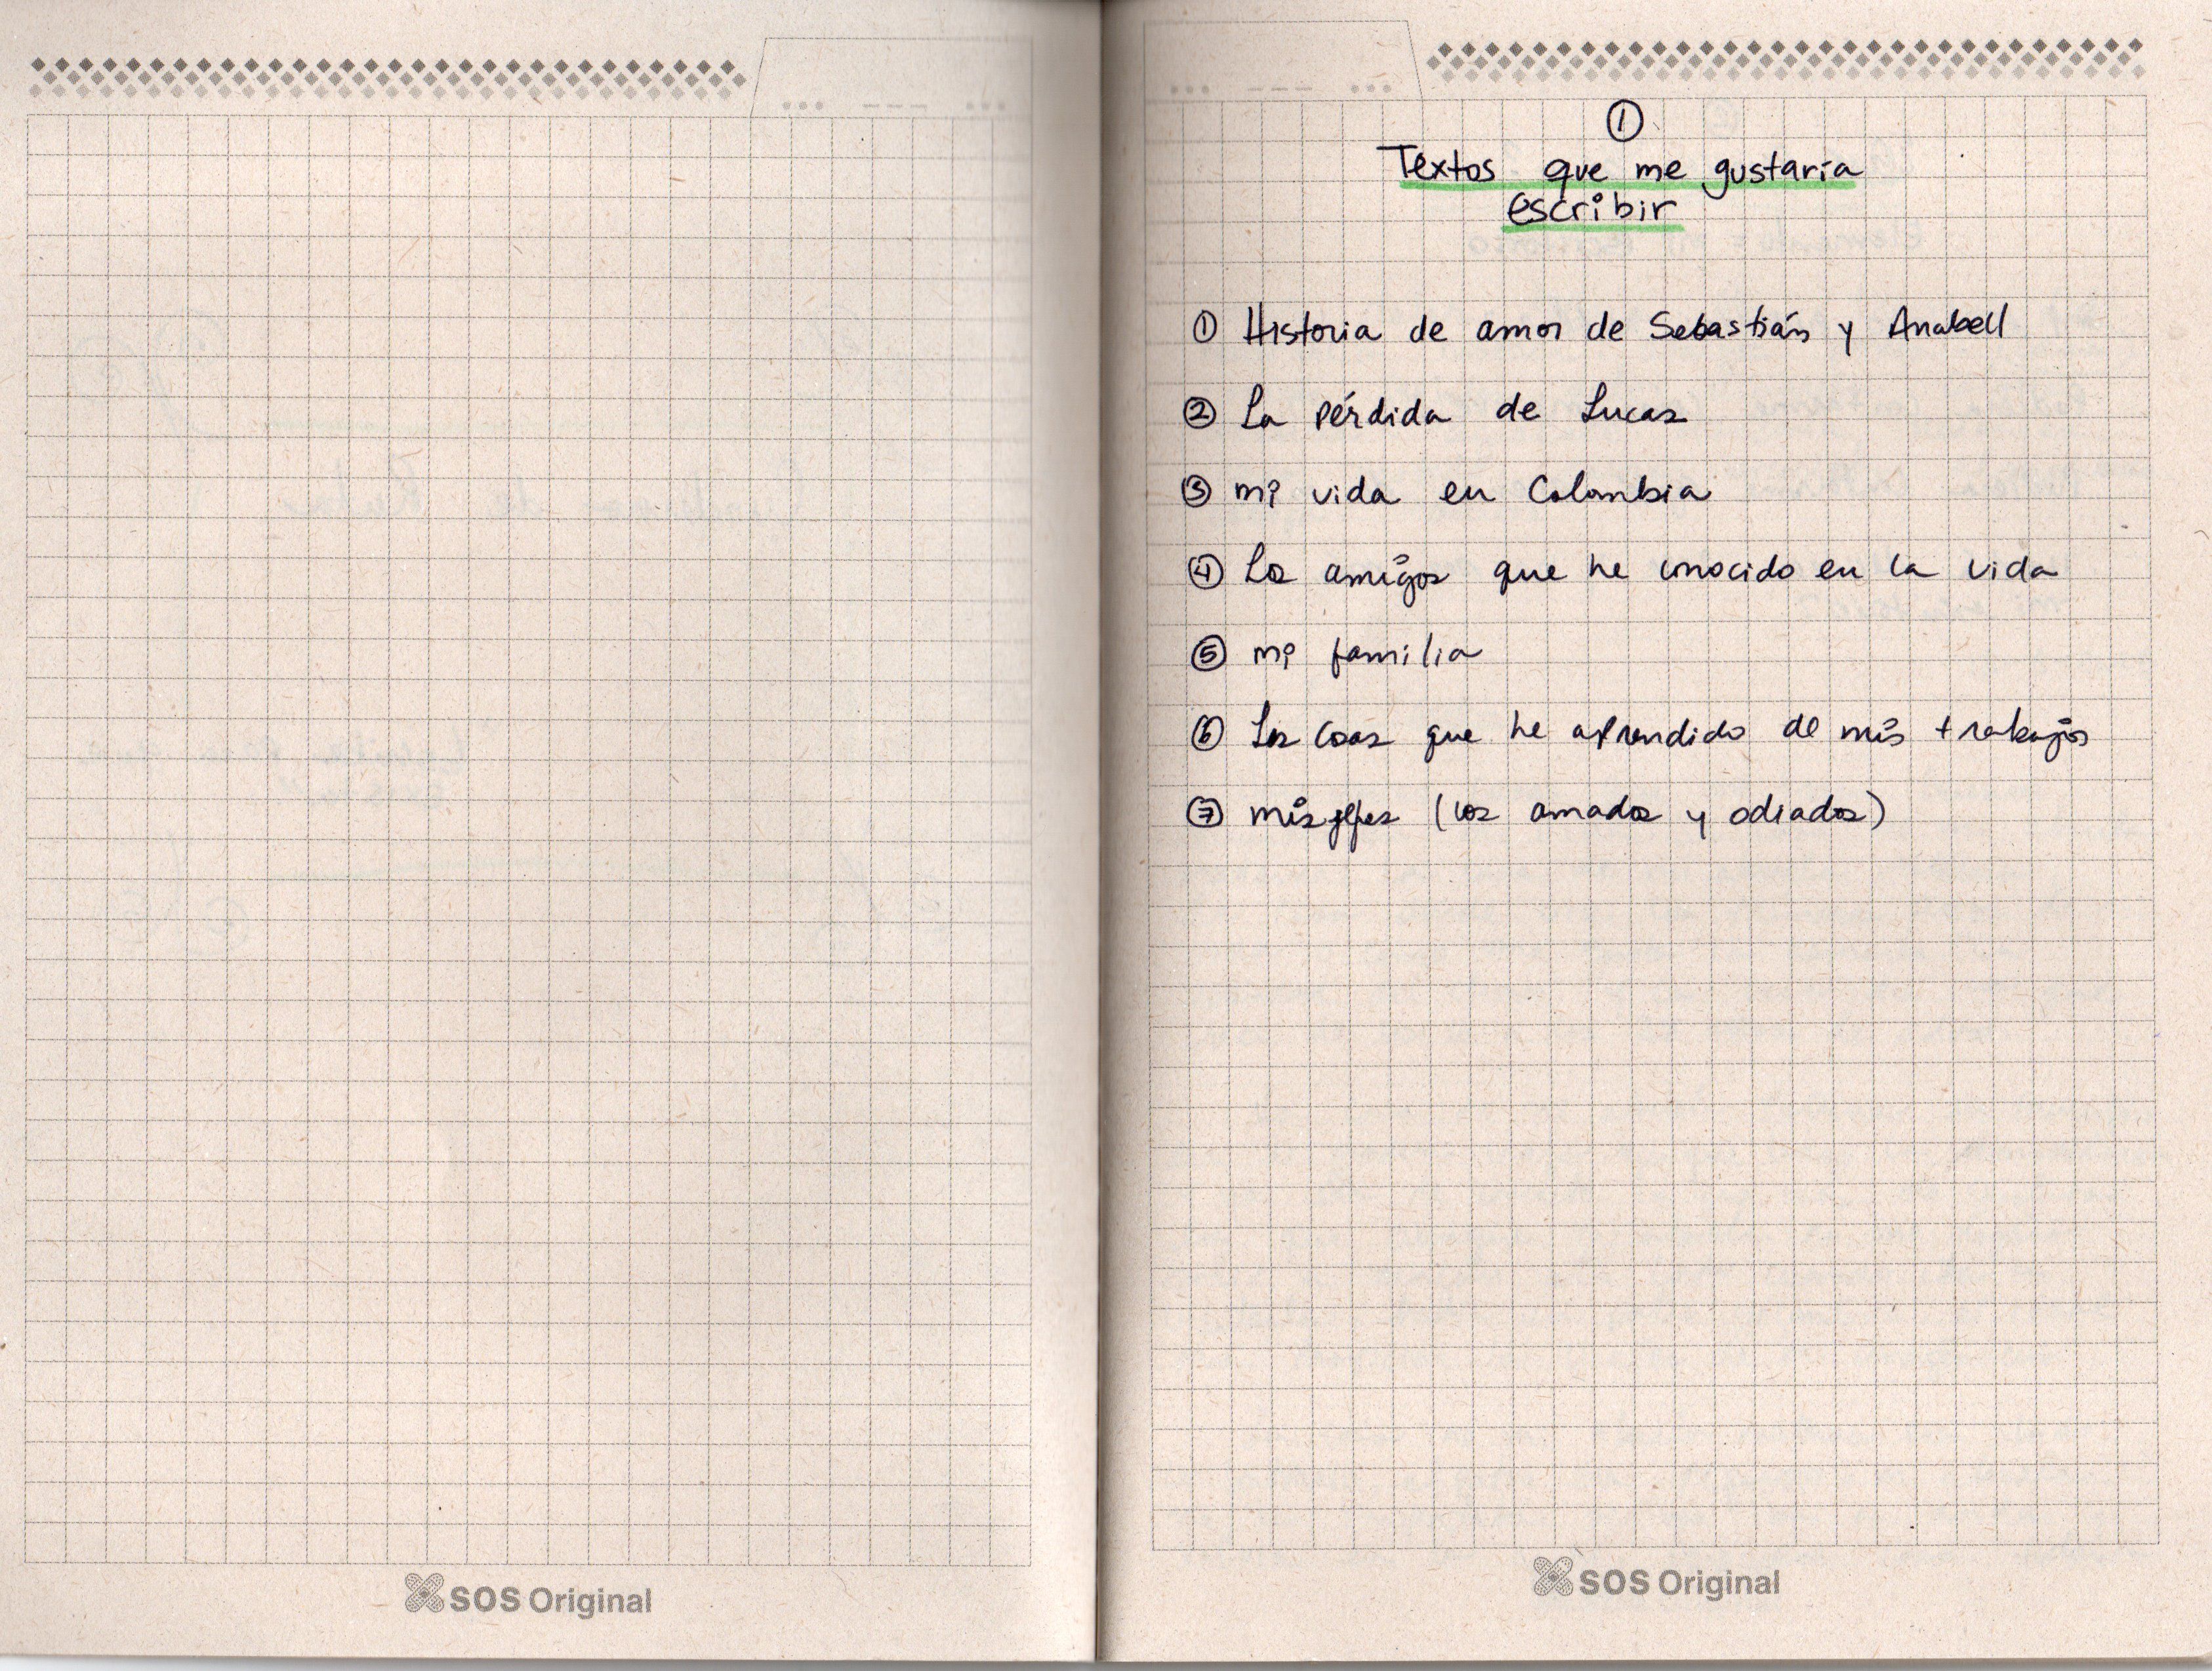 ①
Textos que me gustaría
escribir
① Historia de amor de Sebastián y Anabell
② La pérdida de Lucas
③ mi vida en Colombia
④ Los amigos que he conocido en la vida
⑤ mi familia
⑥ Las cosas que he aprendido de mis trabajos
⑦ mis jefes (los amados y odiados)
SOS Original
SOS Original